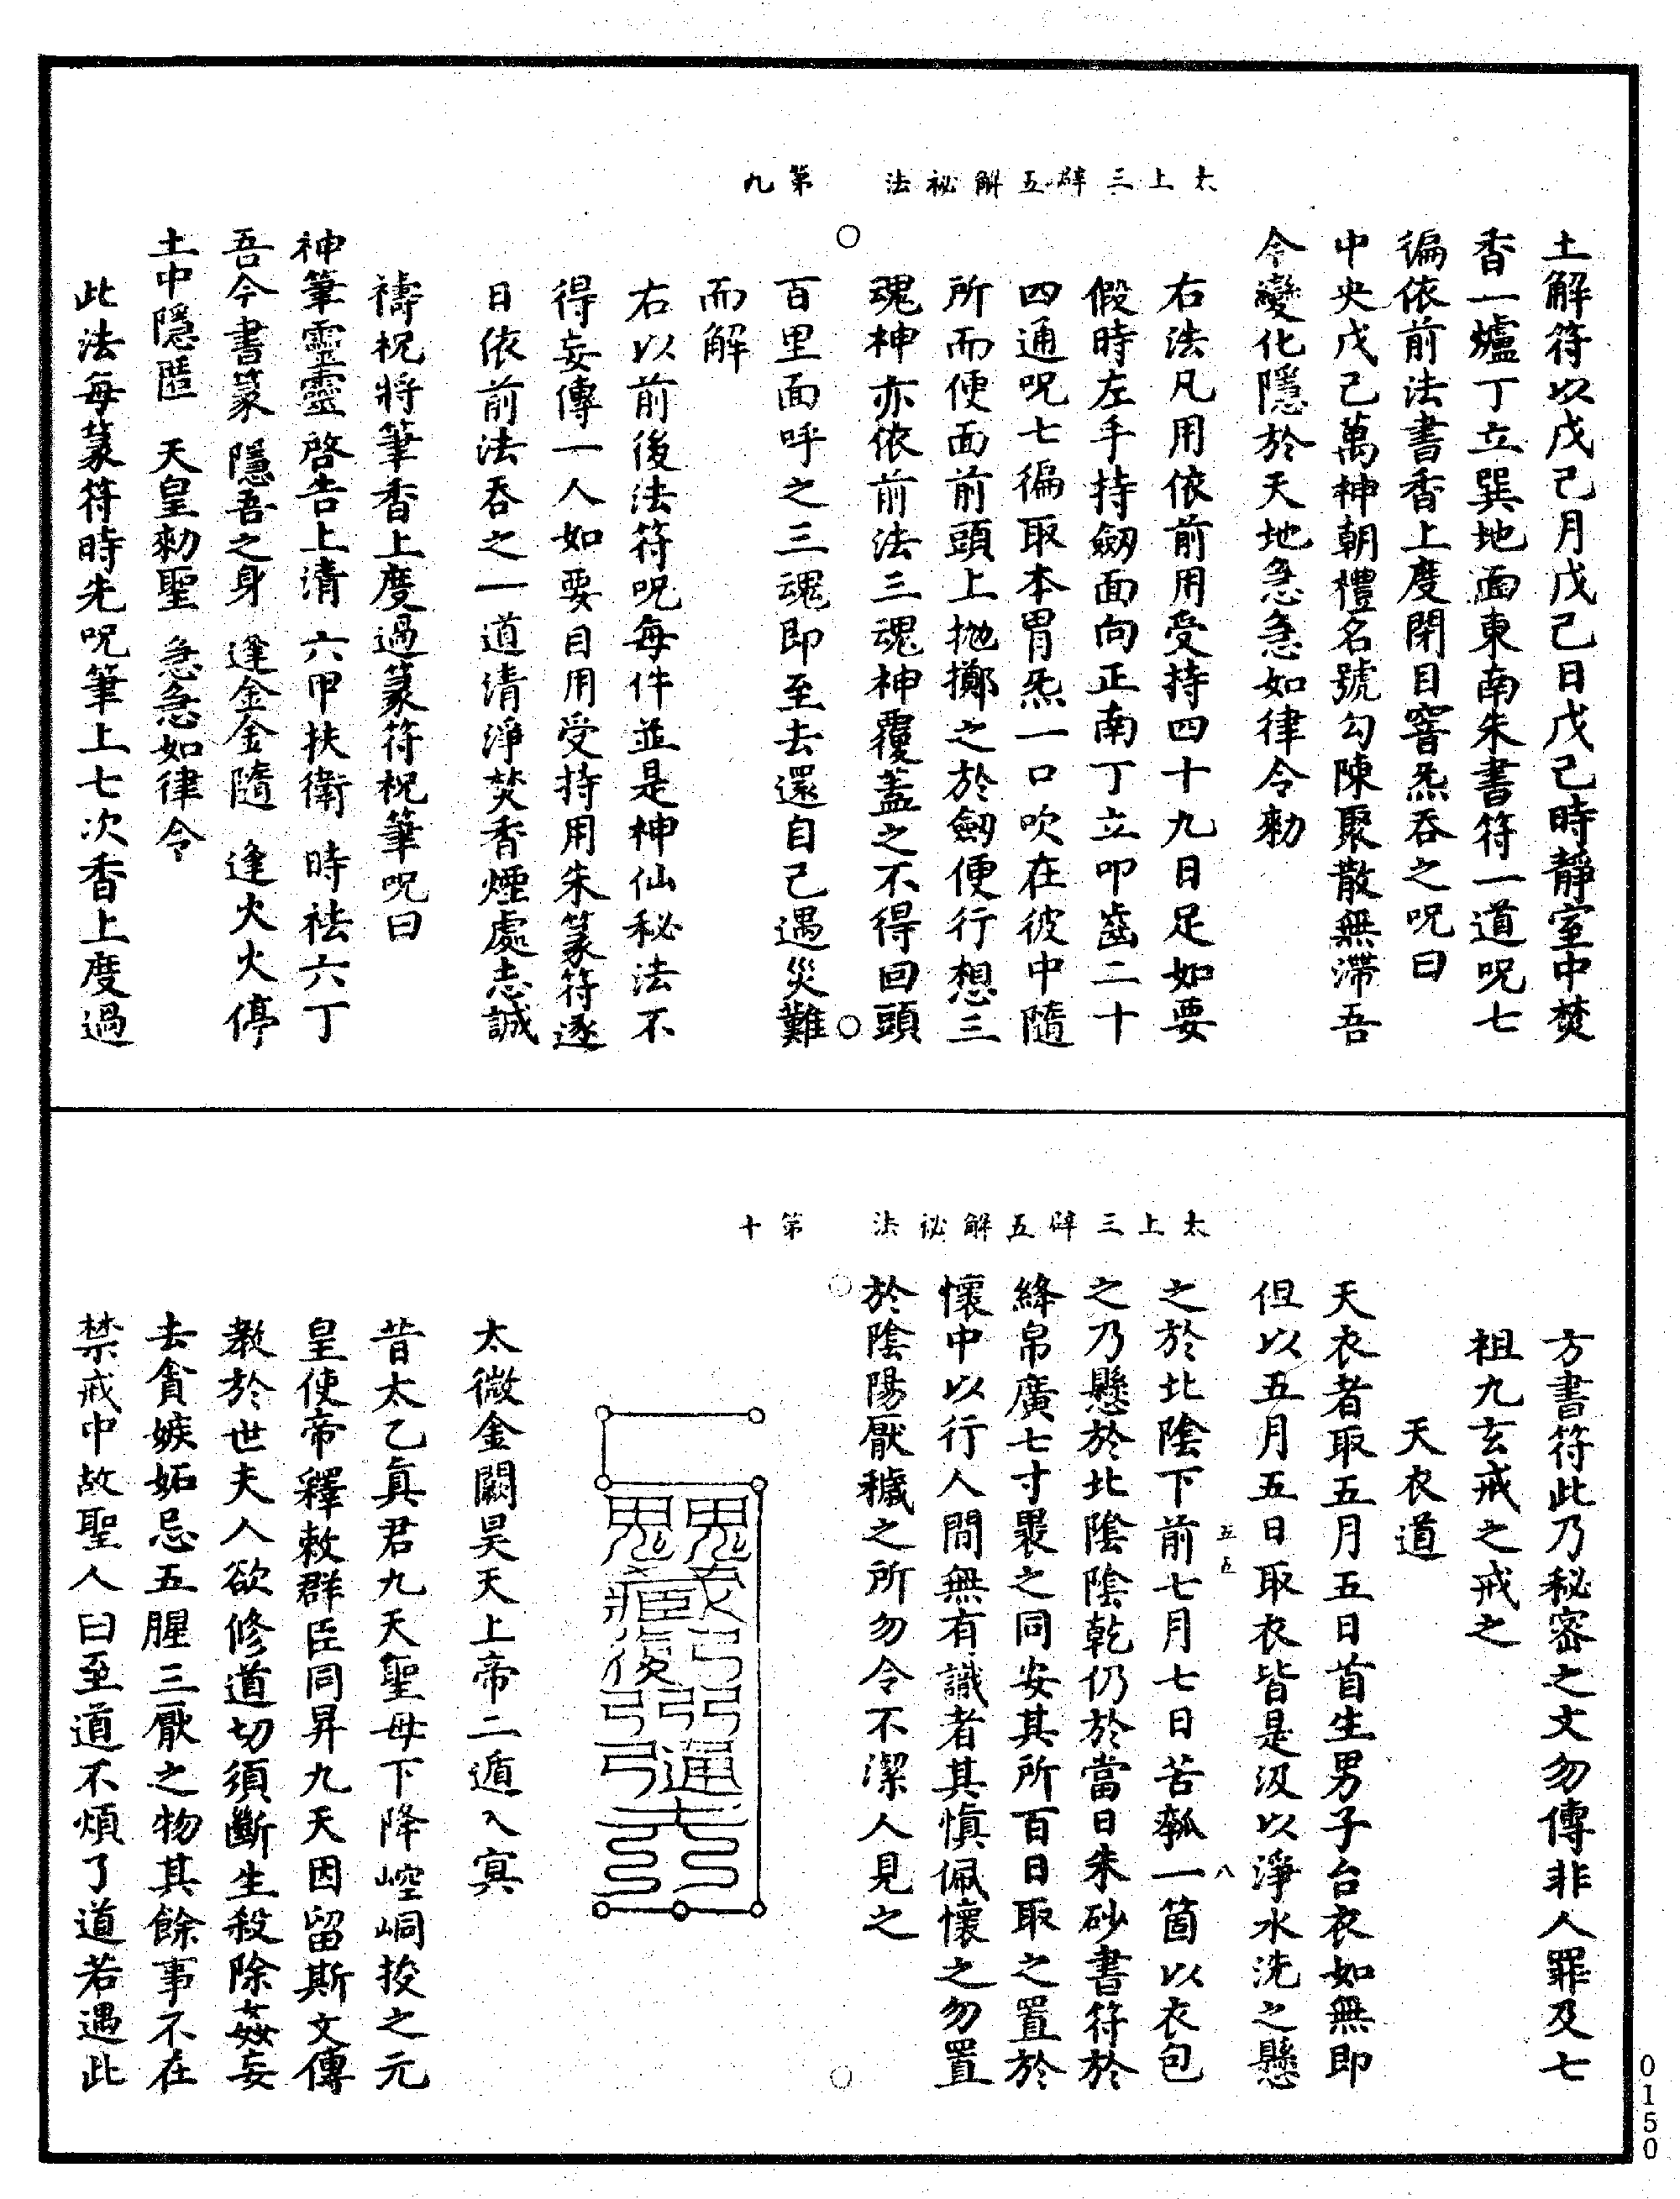 太上三辟五解祕法　第九
土解符以戊己月戊己日戊己時靜室中焚
香一爐丁立巽地面東南朱書符一道呪七
徧依前法書香上度閉目窨炁吞之呪曰
中央戊己萬神朝禮名號勾陳聚散無滯吾
令變化隱於天地急急如律令勑
右法凡用依前用受持四十九日足如要
假時左手持劒面向正南丁立叩齒二十
四通呪七徧取本胃炁一口吹在彼中隨
所而便面前頭上拋擲之於劒便行想三
魂神亦依前法三魂神覆蓋之不得回頭
百里面呼之三魂即至去還自己遇災難
而解
右以前後法符呪每件並是神仙秘法不
得妄傳一人如要自用受持用朱篆符逐
日依前法吞之一道清淨焚香煙處志誠
禱祝將筆香上度過篆符祝筆呪曰
神筆靈靈　啓告上清　六甲扶衛　時祛六丁
吾今書篆　隱吾之身　逢金金隨　逢火火停
土中隱匿　天皇勑聖　急急如律令
此法每篆符時先呪筆上七次香上度過
太上三辟五解祕法　第十
方書符此乃秘密之文勿傳非人罪及七
祖九玄戒之戒之
天衣道
天衣者取五月五日首生男子台衣如無即
但以五月五日取衣皆是汲以淨水洗之懸
五五　八
之於北陰下前七月七日苦瓠一箇以衣包
之乃懸於北陰陰乾仍於當日朱砂書符於
絳帛廣七寸褁之同安其所百日取之置於
懷中以行人間無有識者其慎佩懷之勿置
於陰陽厭穢之所勿令不潔人見之
太微金闕昊天上帝二遁入冥
昔太乙真君九天聖母下降崆峒授之元
皇使帝釋敕群臣同昇九天因留斯文傳
教於世夫人欲修道切須斷生殺除姦妄
去貪嫉妬忌五腥三厭之物其餘事不在
禁戒中故聖人曰至道不煩了道若遇此
0150